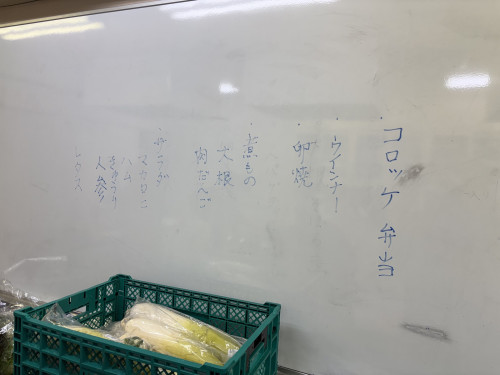 ・コロッケ弁当
・ウインナー
・卵焼
・煮もの
大根
肉だんご
・サラダ
マカロニ
ハム
きゅうり
人参
レタス